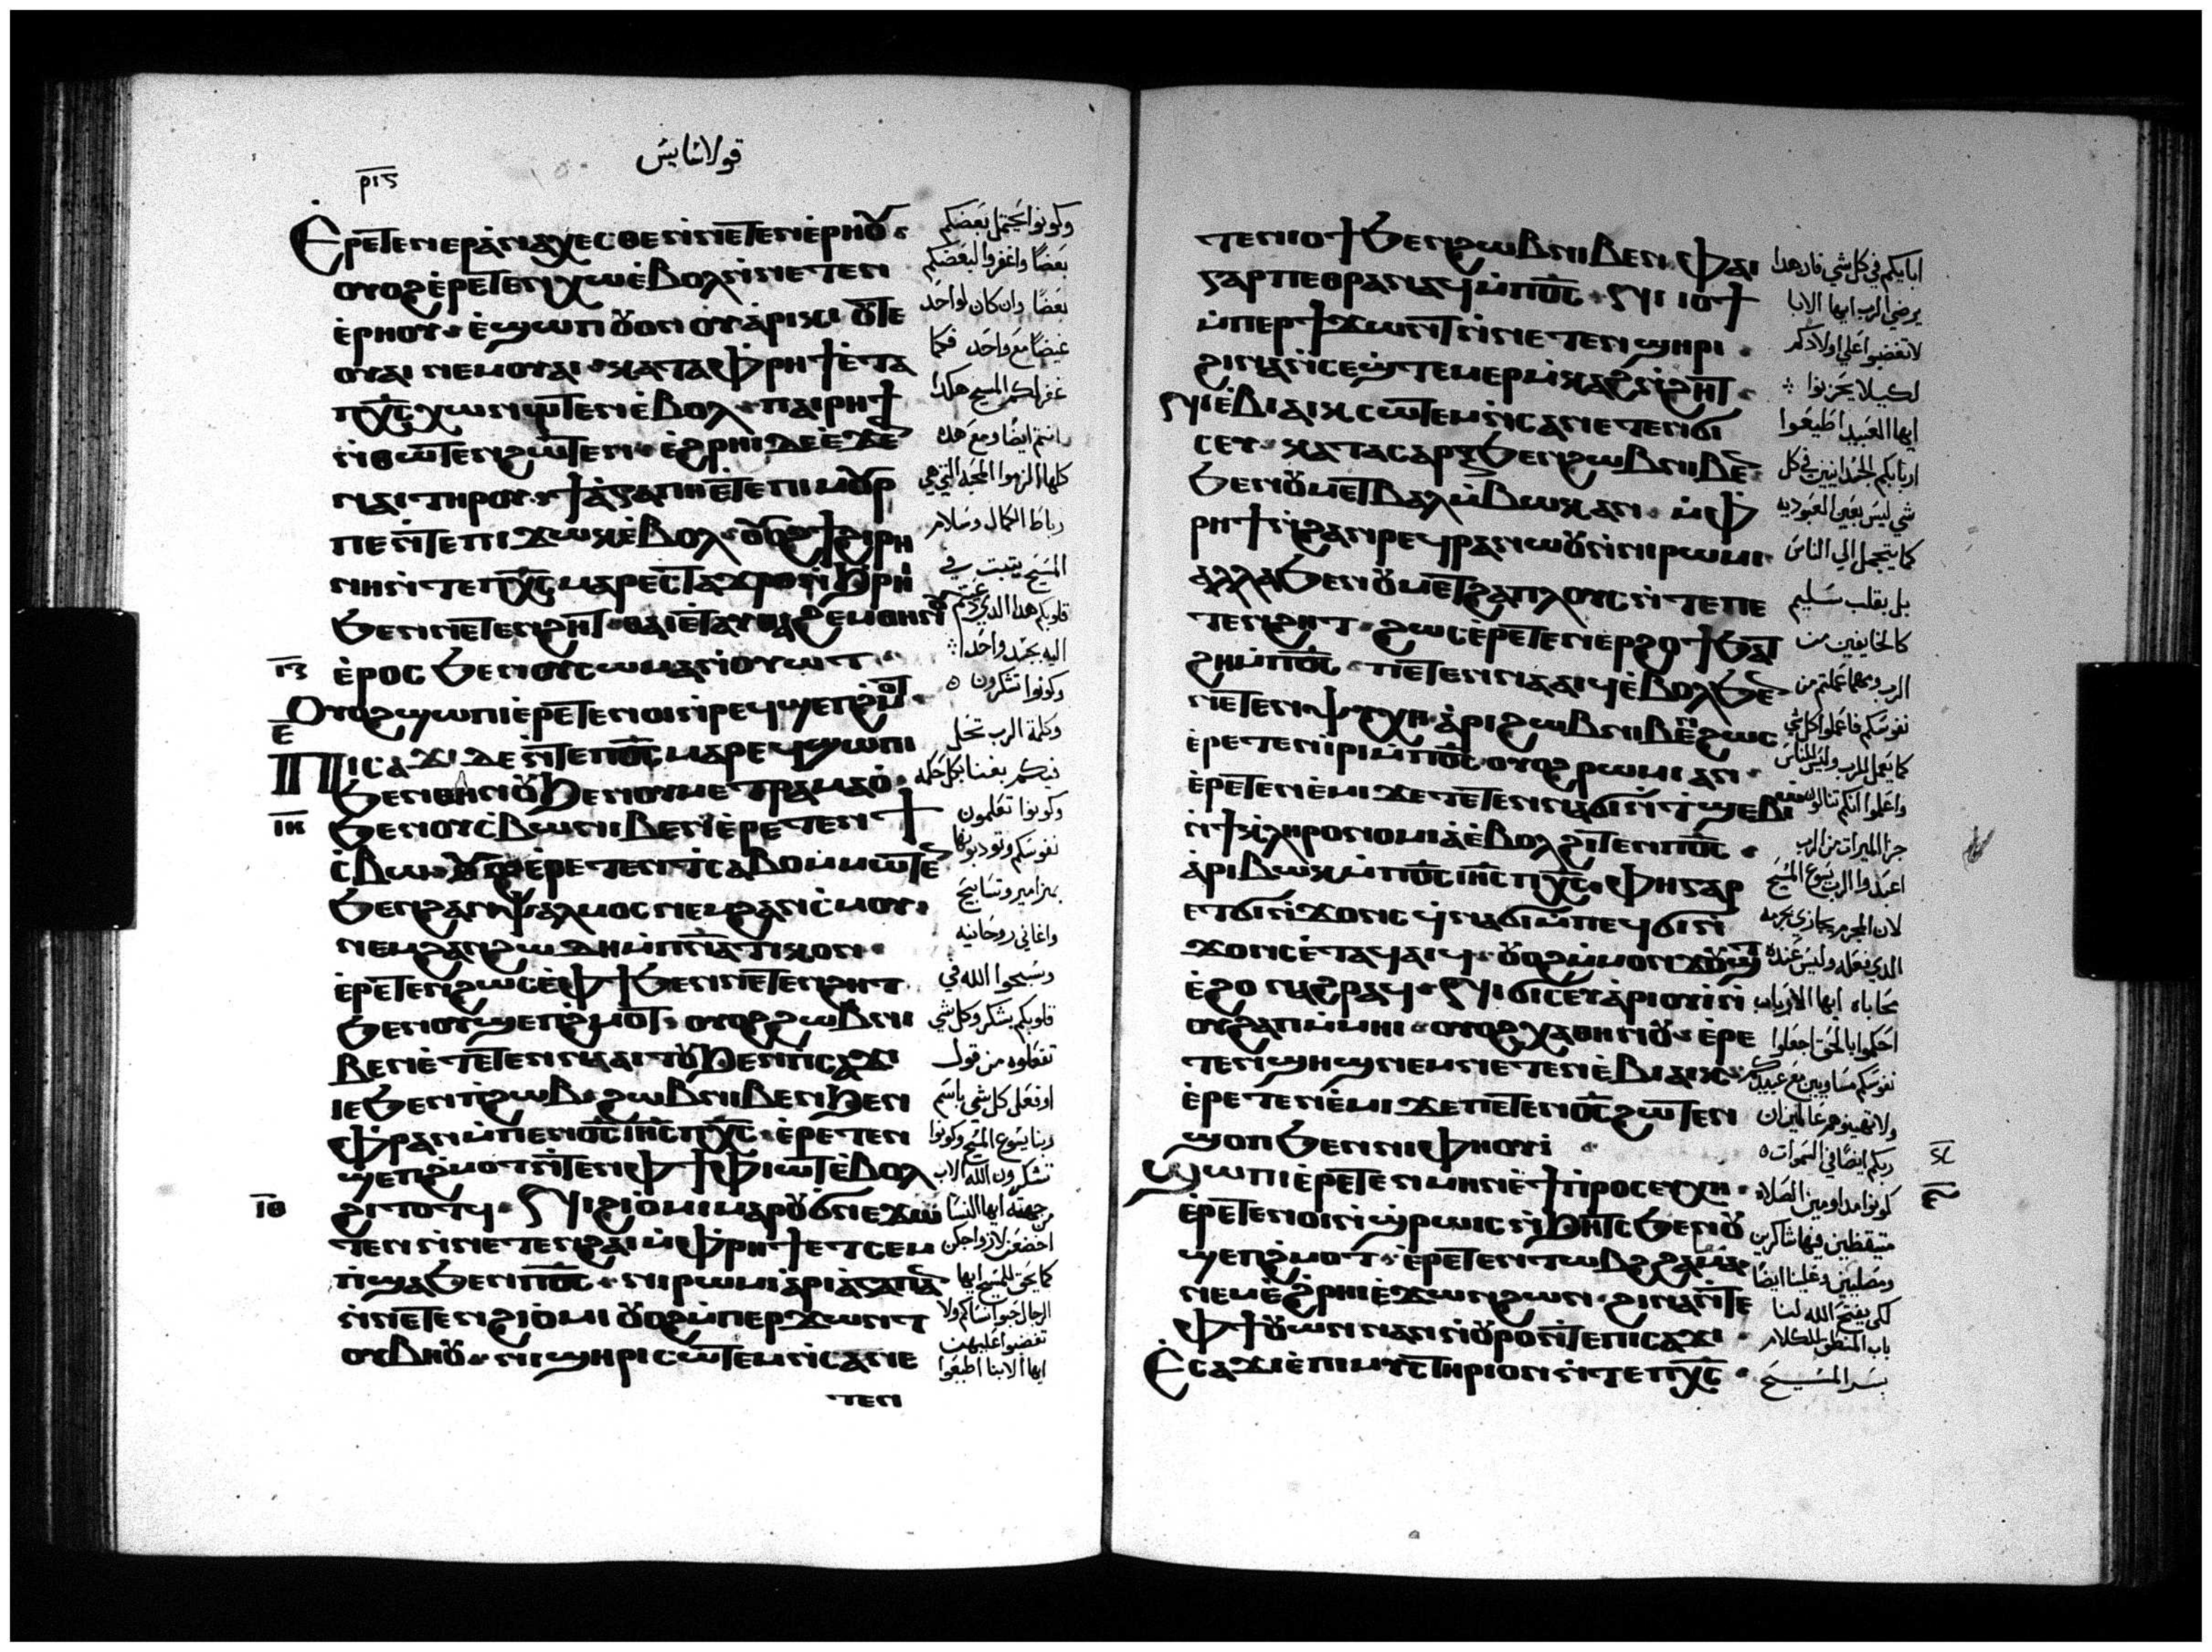 قولاسايس
ⲣⲓⲋ
Ⲉⲣⲉⲧⲉⲛⲉⲣⲁⲛⲁⲭⲉⲥⲑⲉⲛⲛⲉⲧⲉⲛⲉⲣⲏⲟⲩ
ⲟⲩⲟϩⲉⲣⲉⲧⲉⲛⲭⲱⲉⲃⲟⲗⲛⲛⲉⲧⲉⲛ
ⲉⲣⲏⲟⲩ ⲉϣⲱⲡ ⲟⲩⲟⲛ ⲟⲩⲁⲣⲓⲕⲓ ⲟⲩⲧⲉ
ⲟⲩⲁⲓ ⲛⲉⲙⲟⲩⲁⲓ ⲕⲁⲧⲁⲫⲣⲏϯⲉⲧⲁ
ⲡⲭⲥⲭⲱⲛⲱⲧⲉⲛⲉⲃⲟⲗ ⲡⲁⲓⲣⲏϯ
ⲛⲑⲱⲧⲉⲛϩⲱⲧⲉⲛ ⲉϩⲣⲏⲓⲇⲉⲉϫⲉⲛ
ⲛⲁⲓ ⲧⲏⲣⲟⲩ ϯⲁⲅⲁⲡⲏⲉⲧⲉⲡⲓⲙⲟⲩⲣ
ⲡⲉⲛⲧⲉⲡⲓϫⲱⲕⲉⲃⲟⲗ ⲟⲩⲟϩϯϩⲓⲣⲏ
ⲛⲏⲛⲧⲉⲡⲭⲥⲙⲁⲣⲉⲥⲧⲁϫⲣⲟⲛϧⲣⲏⲓ
ϧⲉⲛⲛⲉⲧⲉⲛϩⲏⲧ ⲑⲁⲓⲉⲧⲁⲩⲑⲁϩⲉⲙⲑⲏⲛⲟⲩ
ⲓⲍ
ⲉⲣⲟⲥ ϧⲉⲛⲟⲩⲥⲱⲙⲁⲛⲟⲩⲱⲧ
Ⲟⲩⲟϩϣⲱⲡⲓⲉⲣⲉⲧⲉⲛⲟⲓⲛⲣⲉϥϣⲉⲡϩⲙⲟⲧ
ⲉ
Ⲡⲓⲥⲁϫⲓ ⲇⲉⲛⲧⲉⲡⲟⲥⲙⲁⲣⲉϥϣⲱⲡⲓ
ϧⲉⲛⲑⲏⲛⲟⲩϧⲉⲛⲟⲩⲙⲉⲧⲣⲁⲙⲁⲟ
ⲓⲏ
ϧⲉⲛⲟⲩⲥⲃⲱⲛⲓⲃⲉⲛ ⲉⲣⲉⲧⲉⲛϯ
ⲥⲃⲱ ⲟⲩⲟϩⲉⲣⲉⲧⲉⲛⲧⲥⲁⲃⲟⲙⲙⲱⲧⲉⲛ
ϧⲉⲛϩⲁⲛⲯⲁⲗⲙⲟⲥⲛⲉⲙϩⲁⲛⲥⲙⲟⲩ
ⲛⲉⲙϩⲁⲛϩⲱⲇⲏⲙⲡⲛⲁⲧⲓⲕⲟⲛ
ⲉⲣⲉⲧⲉⲛϩⲱⲥⲉⲫϯϧⲉⲛⲛⲉⲧⲉⲛϩⲏⲧ
ϧⲉⲛⲟⲩϣⲉⲡϩⲙⲟⲧ ⲟⲩⲟϩϩⲱⲃⲛⲓ
ⲃⲉⲛⲉⲧⲉⲧⲉⲛⲛⲁⲁⲓⲧⲟⲩϧⲉⲛⲡⲥⲁϫⲓ
ⲓⲉϧⲉⲛⲡϩⲱⲃ ϩⲱⲃⲛⲓⲃⲉⲛϧⲉⲛ
ⲫⲣⲁⲛⲙⲡⲉⲛⲟⲥⲓⲏⲥⲡⲭⲥ ⲉⲣⲉⲧⲉⲛ
ϣⲉⲡϩⲙⲟⲧⲛⲧⲉⲛⲫϯⲫⲓⲱⲧⲉⲃⲟⲗ
ⲓⲑ
ϩⲓⲧⲟⲧϥ ⲛⲓϩⲓⲟⲙⲓⲙⲁⲣⲟⲩϭⲛⲉϫⲱ
ⲧⲉⲛⲛⲛⲉⲧⲉⲛϩⲁⲓⲙⲫⲣⲏϯⲉⲧⲥⲉⲙ
ⲡϣⲁϧⲉⲛⲡⲟⲥ ⲛⲓⲣⲱⲙⲓⲁⲣⲓⲁⲅⲁⲡⲁⲛ
ⲛⲛⲉⲧⲉⲛϩⲓⲟⲙⲓ ⲟⲩⲟϩⲙⲡⲉⲣϫⲱⲛⲧ
ⲟⲩⲃⲏⲟⲩ ⲛⲓϣⲏⲣⲓⲥⲱⲧⲉⲙⲛⲥⲁⲛⲉ
ⲧⲉⲛ
وكونوا يحتمل بعضكم
بعضا واغفروا لبعضكم
بعضا وان كان لواحد
غيضا مع واحد فكما
غفر لكم المسيح هكذا
انتم ايضا ومع هذه
كلها الزموا المحبه التي هي
رباط الكمال وسلام
المسيح يتبت في
قلوبكم هذا الذي دعيتم
اليه بجسد واحد
وكونوا تشكرون
وكلمة الرب تحل
فيكم بغنا بكل حكمه
وكونوا تعلمون
نفوسكم وتودبوها
بمزامير وتسابيح
واغاني روحانيه
وسبحوا الله في
قلوبكم بشكر وكل شي
تفعلوه من قول
او فعل كل شي باسم
ربنا يسوع المسيح وكونوا
تشكرون الله الاب
من جهته ايها النسا
اخضعن لازواجكن
كما يحق للمسيح ايها
الرجال حبوا نساكم ولا
تغضبوا عليهن
ايها الابنا اطيعوا
ⲧⲉⲛⲓⲟϯϧⲉⲛϩⲱⲃⲛⲓⲃⲉⲛ ⲫⲁⲓ
ⲅⲁⲣⲡⲉⲑⲣⲁⲛⲁϥⲙⲡⲟⲥ ⲛⲓⲓⲟϯ
ⲙⲡⲉⲣϯϫⲱⲛⲧⲛⲛⲉⲧⲉⲛϣⲏⲣⲓ
ϩⲓⲛⲁⲛⲥⲉϣⲧⲉⲙⲉⲣⲙⲕⲁϩⲛϩⲏⲧ
ⲛⲓⲉⲃⲓⲁⲓⲕⲥⲱⲧⲉⲙⲛⲥⲁⲛⲉⲧⲉⲛϭⲓ
ⲥⲉⲩ ⲕⲁⲧⲁⲥⲁⲣⲝϧⲉⲛϩⲱⲃⲛⲓⲃⲉⲛ
ϧⲉⲛⲟⲩⲙⲉⲧⲃⲁⲗⲙⲃⲱⲕⲁⲛ ⲙⲫ
ⲣⲏϯⲛϩⲁⲛⲣⲉϥⲣⲁⲛⲱⲟⲩⲛⲛⲓⲣⲱⲙⲓ
ⲁⲗⲗⲁϧⲉⲛⲟⲩⲙⲉⲧϩⲁⲡⲗⲟⲩⲥⲛⲧⲉⲡⲉ
ⲧⲉⲛϩⲏⲧ ϩⲱⲥⲉⲣⲉⲧⲉⲛⲉⲣϩⲟϯϧⲁⲧ
ϩⲏⲙⲡⲟⲥ ⲡⲉⲧⲉⲛⲛⲁⲁⲓϥⲉⲃⲟⲗϧⲉⲛ
ⲛⲉⲧⲉⲛⲯⲩⲭⲏ ⲁⲣⲓϩⲱⲃⲛⲓⲃⲉⲛϩⲱⲥ
ⲉⲣⲉⲧⲉⲛⲓⲣⲓⲙⲡⲟⲥⲟⲩⲟϩⲣⲱⲙⲓⲁⲛ
ⲉⲣⲉⲧⲉⲛⲉⲙⲓϫⲉⲧⲉⲧⲉⲛⲛⲁϭⲓⲛⲧϣⲉⲃⲓⲱ
ⲛϯⲕⲗⲏⲣⲟⲛⲟⲙⲓⲁⲉⲃⲟⲗϩⲓⲧⲉⲛⲡⲟⲥ
ⲁⲣⲓⲃⲱⲕⲙⲡⲟⲥⲓⲏⲥⲡⲭⲥ ⲫⲏⲅⲁⲣ
ⲉⲧϭⲓⲛϫⲟⲛⲥϥⲛⲁϭⲓⲙⲡⲉϥϭⲓⲛ
ϫⲟⲛⲥⲉⲧⲁϥⲁⲓϥ ⲟⲩⲟϩⲙⲙⲟⲛϫⲟⲩϣⲧ
ⲉϩⲟ ⲛⲁϩⲣⲁϥ ⲛⲓϭⲓⲥⲉⲩⲁⲣⲓⲟⲩⲓⲛ
ⲟⲩϩⲁⲡⲙⲙⲏⲓ ⲟⲩⲟϩⲭⲁⲑⲏⲛⲟⲩ ⲉⲣⲉ
ⲧⲉⲛϣⲏϣⲛⲉⲙⲛⲉⲧⲉⲛⲉⲃⲓⲁⲓⲕ
ⲉⲣⲉⲧⲉⲛⲉⲙⲓϫⲉⲡⲉⲧⲉⲛⲟⲥϩⲱⲧⲉⲛ
ϣⲟⲡϧⲉⲛⲛⲓⲫⲏⲟⲩⲓ
Ϣⲱⲡⲓⲉⲣⲉⲧⲉⲛⲙⲏⲛⲉϯⲡⲣⲟⲥⲉⲩⲭⲏ
ⲉⲣⲉⲧⲉⲛⲟⲓⲛϣⲣⲱⲓⲥⲛϧⲏⲧⲥϧⲉⲛⲟⲩ
ϣⲉⲡϩⲙⲟⲧ ⲉⲣⲉⲧⲉⲛⲧⲱⲃϩϩⲁⲙⲁ
ⲛⲉⲙⲉϩⲣⲏⲓⲉϫⲱⲛϩⲱⲛ ϩⲓⲛⲁⲛⲧⲉ
ⲫϯⲟⲩⲱⲛⲛⲁⲛⲛⲟⲩⲣⲟⲛⲧⲉⲡⲓⲥⲁϫⲓ
Ⲉⲥⲁϫⲓⲉⲡⲓⲙⲩⲥⲧⲏⲣⲓⲟⲛⲛⲧⲉⲡⲭⲥ
ابايكم في كل شي فان هذا
يرضي الرب ايها الابا
لا تغضبوا علي اولادكم
لكيلا يحزنوا
ايها العبيد اطيعوا
اربابكم الجسدانيين في كل
شي ليس بعين العبوديه
كما يتجمل الي الناس
بل بقلب سليم
كالخايفين من
الرب ومهما عملتم من
نفوسكم فاعملوا كل شي
كما يعمل للرب وليس للناس
واعلموا انكم تنالون
جزا الميراث من الرب
اعبدوا الرب يسوع المسيح
لان المجرم يجازي بجرمه
الذي فعله وليس عنده
محاباه ايها الارباب
احكموا بالحق اجعلوا
نفوسكم مساويين مع عبيدكم
ولا تهينوهم عالمين ان
ربكم ايضا في السموات
كونوا مداومين الصلاه
متيقظين فيها شاكرين
ومصليين وعلينا ايضا
لكي يفتح الله لنا
باب المنطق للكلام
بسر المسيح